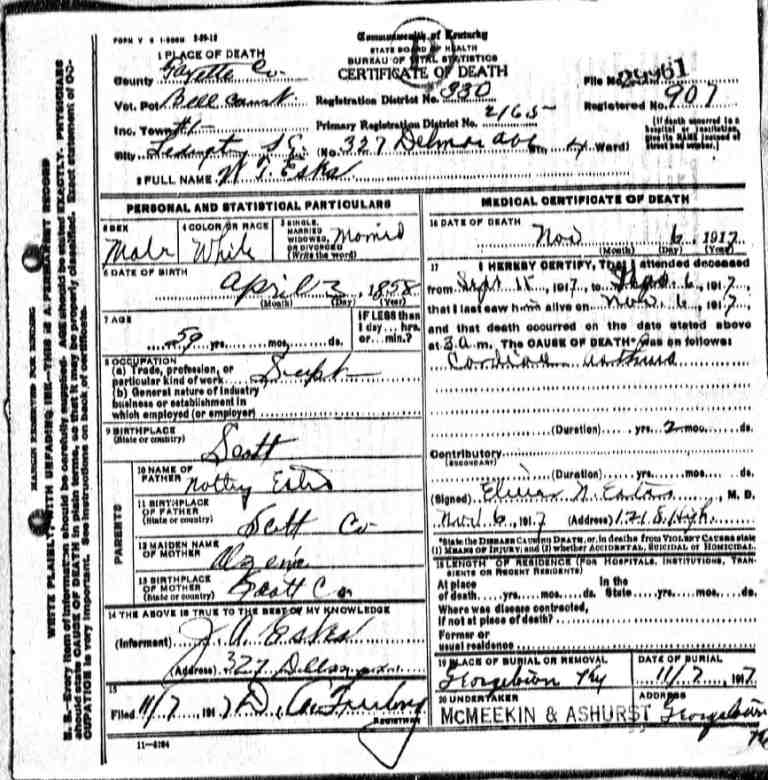 FORM V S 1-500M 2-29-12
Commonwealth of Kentucky
STATE BOARD OF HEALTH
BUREAU OF VITAL STATISTICS
CERTIFICATE OF DEATH
1 PLACE OF DEATH
County Fayette Co
Vot. Pct
Inc. Town #1
City
Registration District No. 330
Primary Registration District No. 2165
(No. 327 Delmar Ave St., 4 Ward)
File No. 29961
Registered No. 907
[If death occurred in a hospital or institution, give its NAME instead of street and number.]
2 FULL NAME
PERSONAL AND STATISTICAL PARTICULARS
3 SEX
Male
4 COLOR OR RACE
White
5 SINGLE, MARRIED, WIDOWED, OR DIVORCED
(Write the word)
Married
6 DATE OF BIRTH
April 3, 1858
(Month) (Day) (Year)
7 AGE
59 yrs. mos. ds.
IF LESS than 1 day... hrs. or... min.?
8 OCCUPATION
(a) Trade, profession, or particular kind of work Supt
(b) General nature of industry
business or establishment in
which employed (or employer)
9 BIRTHPLACE
(State or country)
Scott
PARENTS
10 NAME OF FATHER
11 BIRTHPLACE OF FATHER
(State or country)
Scott Co
12 MAIDEN NAME OF MOTHER
13 BIRTHPLACE OF MOTHER
(State or country)
Scott Co
14 THE ABOVE IS TRUE TO THE BEST OF MY KNOWLEDGE
(Informant)
(Address) 327
15
Filed 11/7 1917
REGISTRAR
11-3184
MEDICAL CERTIFICATE OF DEATH
16 DATE OF DEATH
Nov 6 1917
(Month) (Day) (Year)
17 I HEREBY CERTIFY, That I attended deceased
from Sept 1917, to 6, 1917
that I last saw him alive on Nov. 6, 1917
and that death occurred on the date stated above
at 3 a.m. The CAUSE OF DEATH* was as follows:
Cardiac
(Duration) yrs. 2 mos. ds.
Contributory
(SECONDARY)
(Duration) yrs. mos. ds.
(Signed) M. D.
Nov 6, 1917 (Address) 121 S. High
*State the DISEASE CAUSING DEATH, or, in deaths from VIOLENT CAUSES state
(1) MEANS OF INJURY; and (2) whether ACCIDENTAL, SUICIDAL or HOMICIDAL.
18 LENGTH OF RESIDENCE (FOR HOSPITALS, INSTITUTIONS, TRANSIENTS OR RECENT RESIDENTS)
At place of death yrs. mos. ds. In the State yrs. mos. ds.
Where was disease contracted,
if not at place of death?
Former or
usual residence
19 PLACE OF BURIAL OR REMOVAL
Georgetown Ky
DATE OF BURIAL
11/7, 1917
20 UNDERTAKER
MCMEEKIN & ASHURST
ADDRESS
Georgetown
MARGIN RESERVED FOR BINDING
WRITE PLAINLY WITH UNFADING INK—THIS IS A PERMANENT RECORD
N. B.—Every item of information should be carefully supplied. AGE should be stated EXACTLY. PHYSICIANS
should state CAUSE OF DEATH in plain terms, so that it may be properly classified. Exact statement of OC-
CUPATION is very important. See instructions on back of certificate.